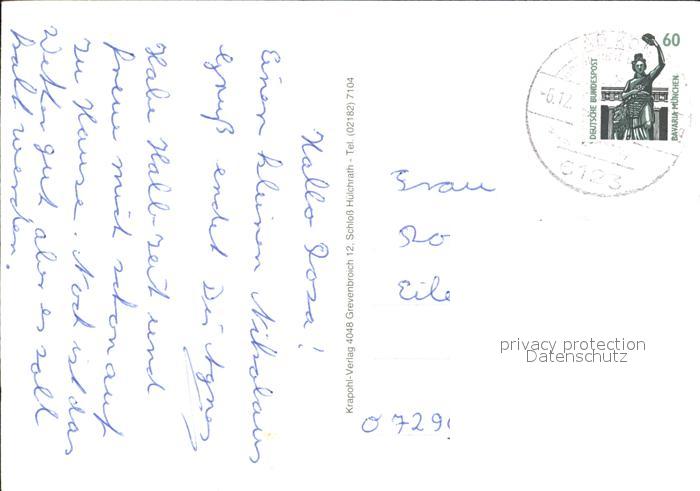 Hallo Rosa!
Einen kleinen Nikolaus
Gruß endet Dir Agnes
Habe Halb-Zeit und
freue mich schon auf
zu Hause. Noch ist das
Wetter gut aber es soll
kalt werden.
Krapohl-Verlag 4048 Grevenbroich 12, Schloß Hülchrath - Tel. (02182) 7104
60
DEUTSCHE BUNDESPOST
BAVARIA MÜNCHEN
-6.12.
6123
Frau
Ro
Eile
privacy protection
Datenschutz
0729